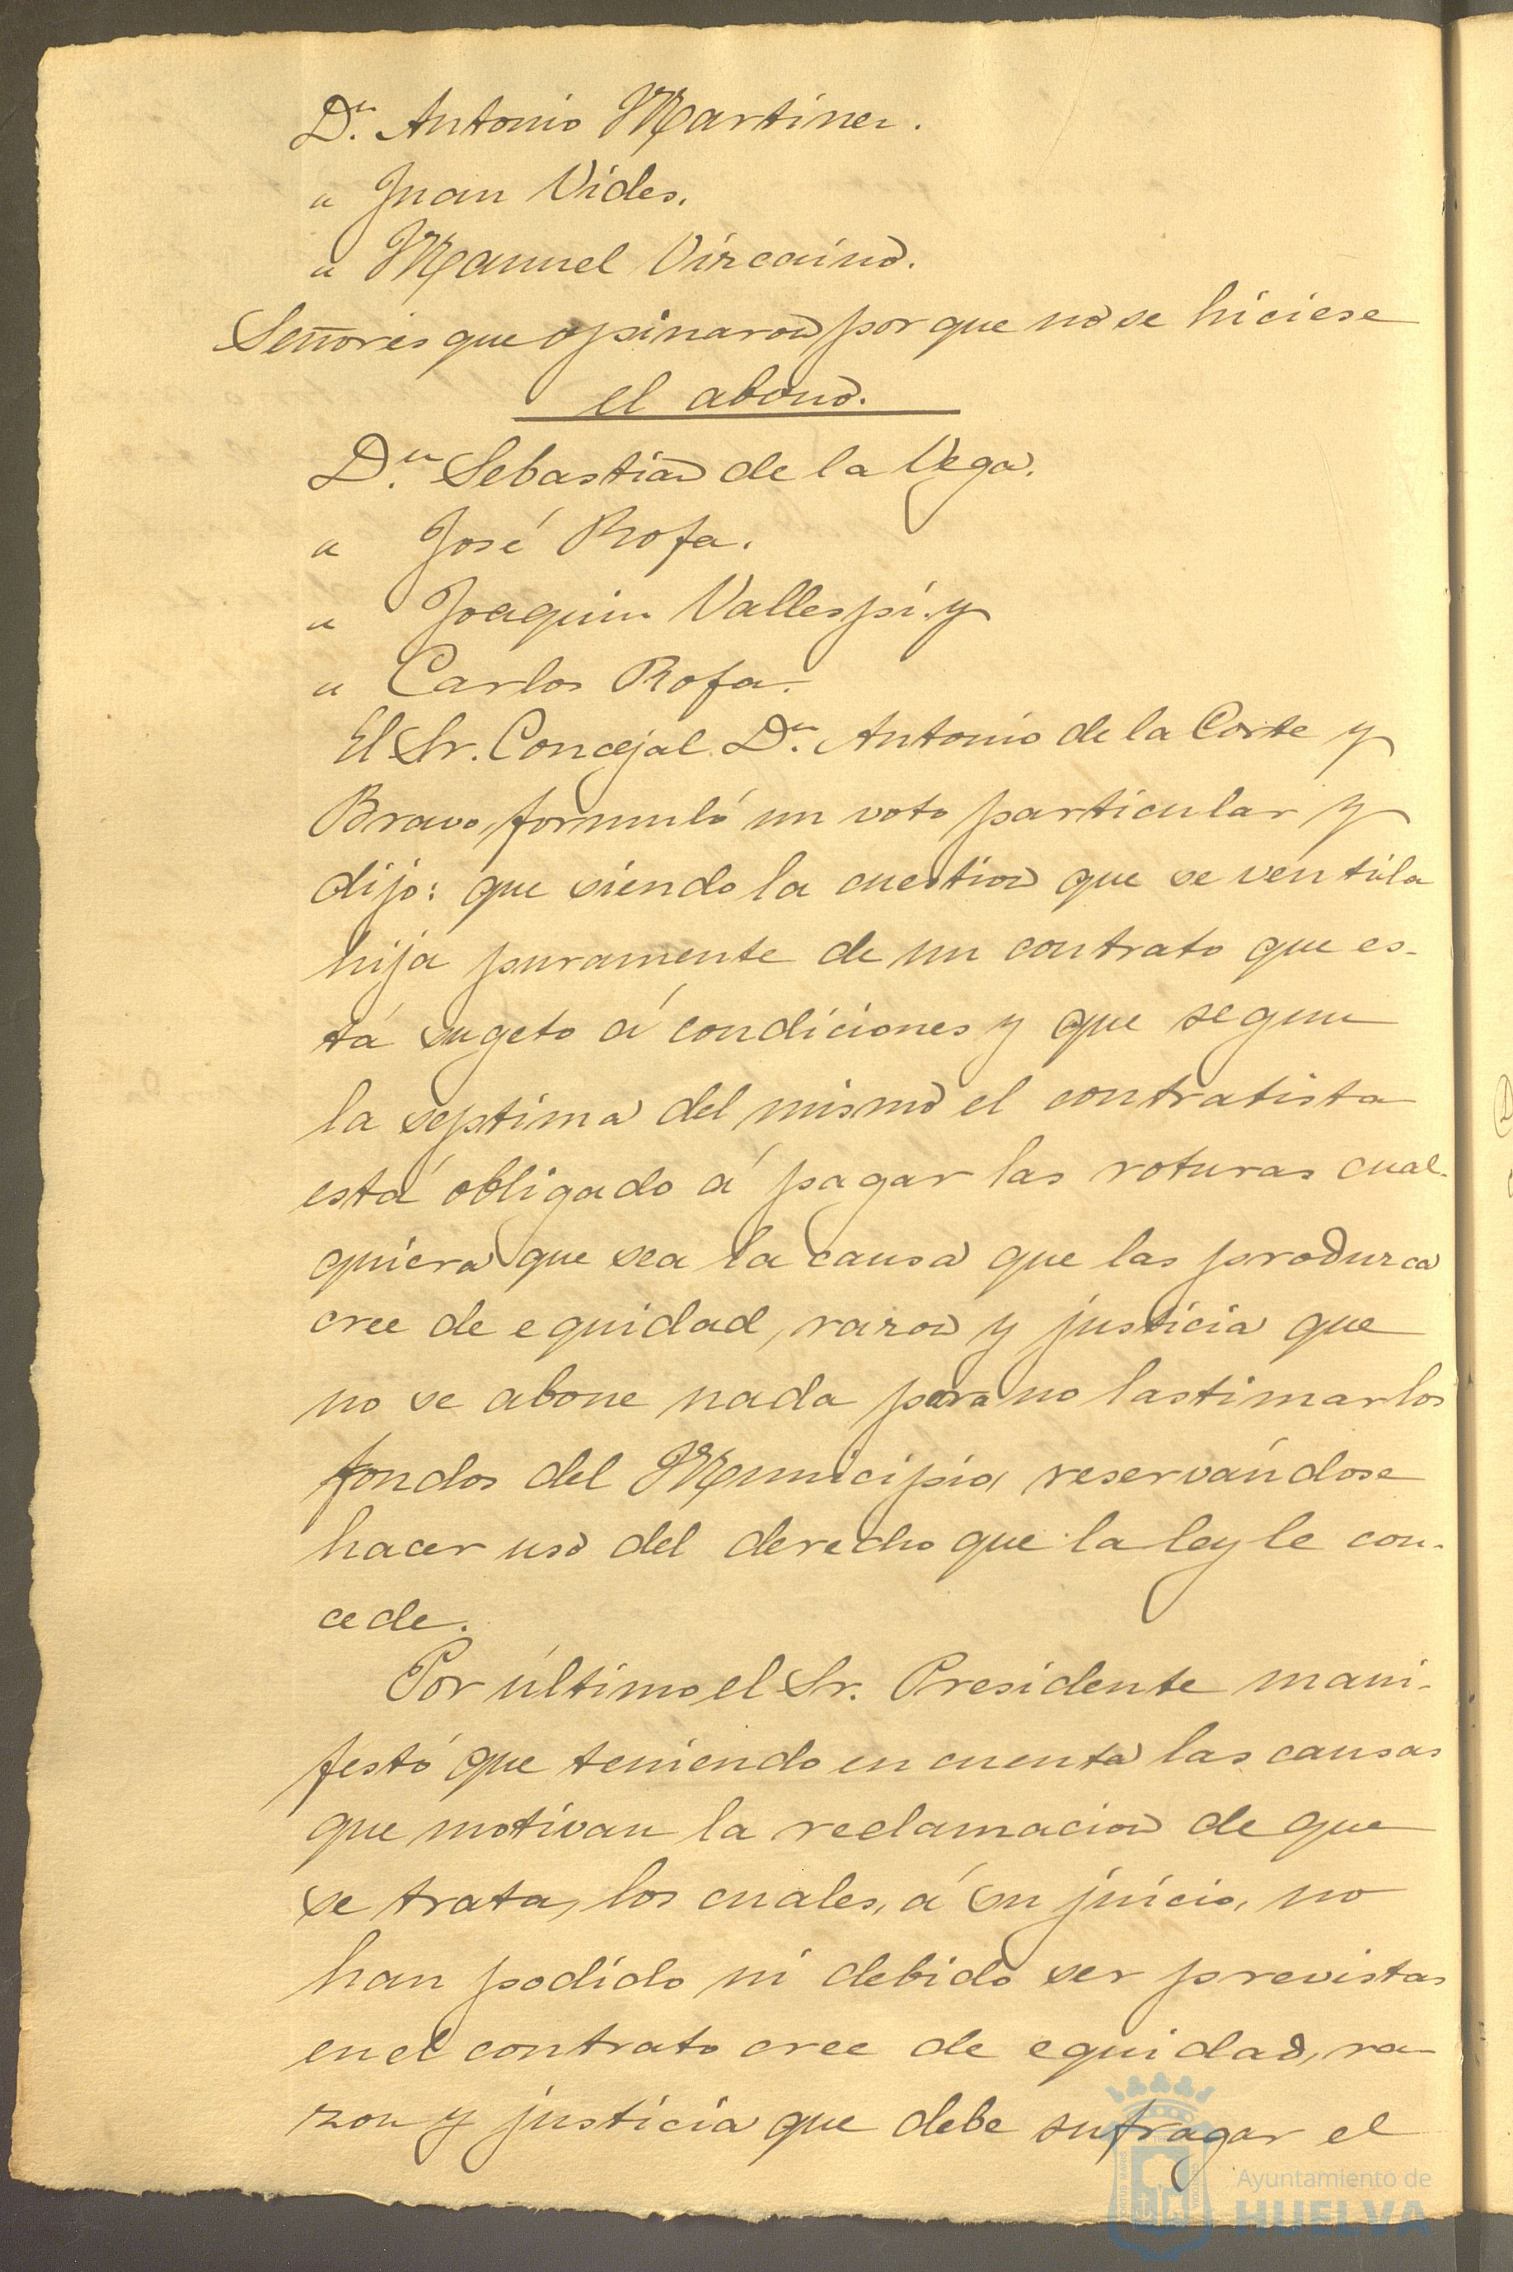 Dn. Antonio Martinez.
" Juan Vides.
" Manuel Vizcaino.
Señores que opinaron por que no se hiciese
el abono.
Dn. Sebastian de la Vega.
" José Rofa.
" Joaquin Vallespí y
" Carlos Rofa.
El Sr. Concejal Dn. Antonio de la Corte y
Bravo, formuló un voto particular y
dijo: que siendo la cuestion que se ventila
hija puramente de un contrato que es-
tá sugeto á condiciones y que segun
la septima del mismo el contratista
está obligado á pagar las roturas cual-
quiera que sea la causa que las produzca
cree de equidad, razon y justicia que
no se abone nada para no lastimar los
fondos del Municipio, reservándose
hacer uso del derecho que la ley le con-
cede.
Por último, el Sr. Presidente mani-
festó que teniendo en cuenta las causas
que motivan la reclamacion de que
se trata, los cuales, á su juicio, no
han podido ni debido ser previstas
en el contrato cree de equidad, ra-
zon y justicia que debe sufragar el
Ayuntamiento de
HUELVA